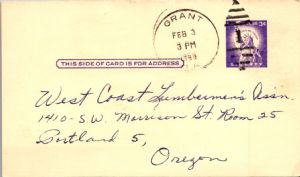 GRANT
FEB 3
3 PM
3¢
THIS SIDE OF CARD IS FOR ADDRESS
West Coast Lumbermen's Assn.
1410-S.W. Morrison St. Room 25
Portland 5,
Oregon